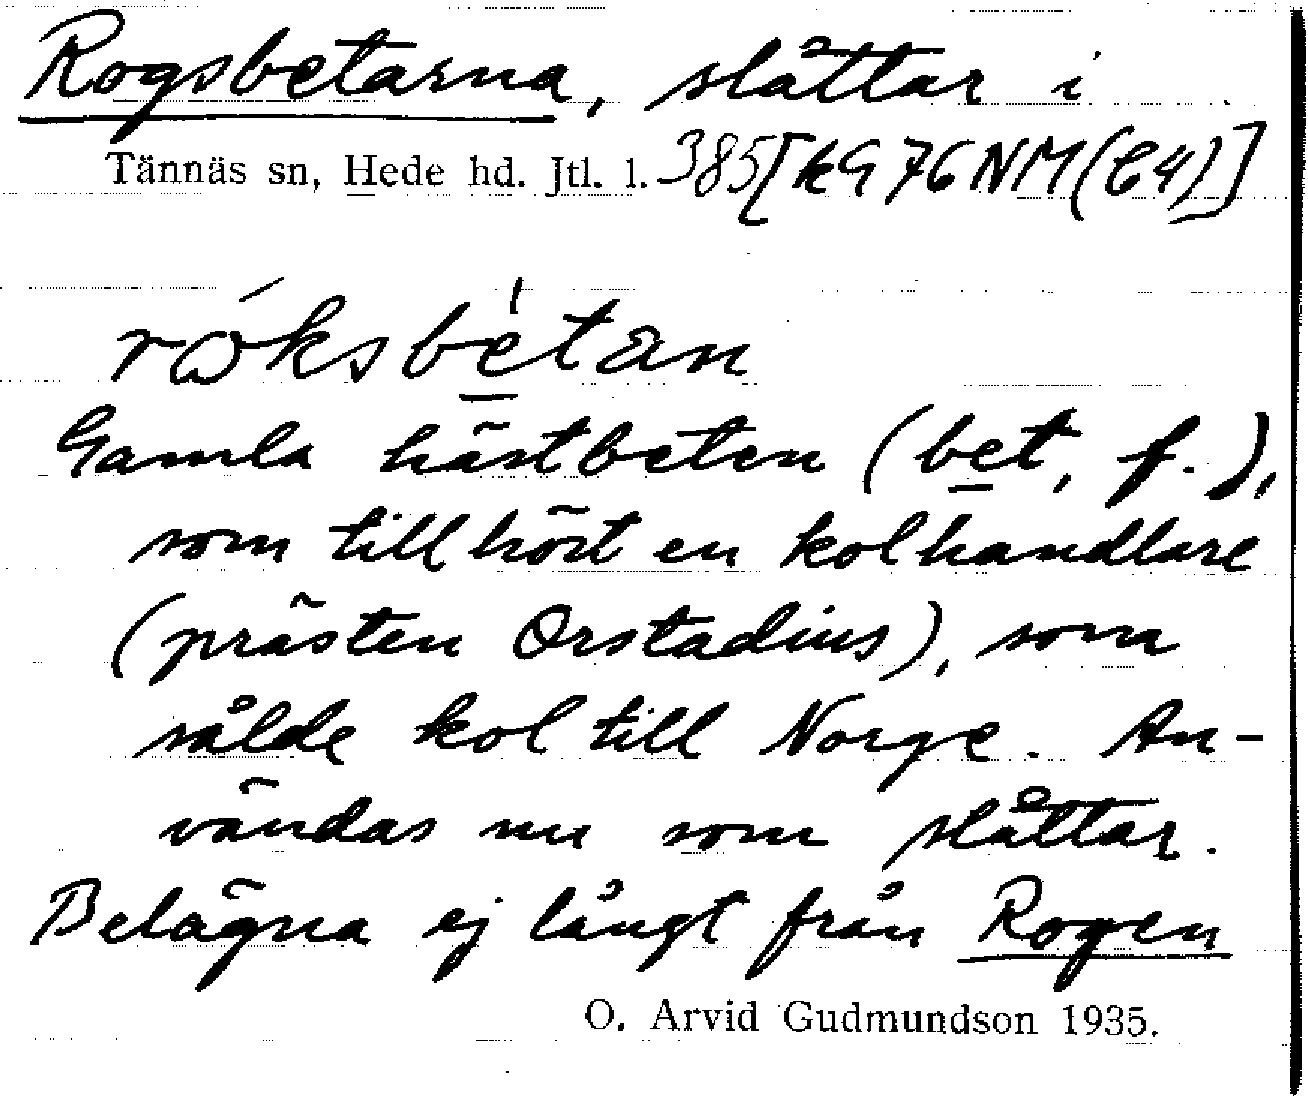 Rogsbetarna, slåttar i
Tännäs sn, Hede hd. Jtl. l. 385 [kG 76 NM (C4)]
róksbétan
Gamla hästbeten (bet, f.),
som tillhört en kolhandlare
(prästen Orstadius), som
sålde kol till Norge. An-
vändas nu som slåttar.
Belägna ej långt från Rogen
O. Arvid Gudmundson 1935.